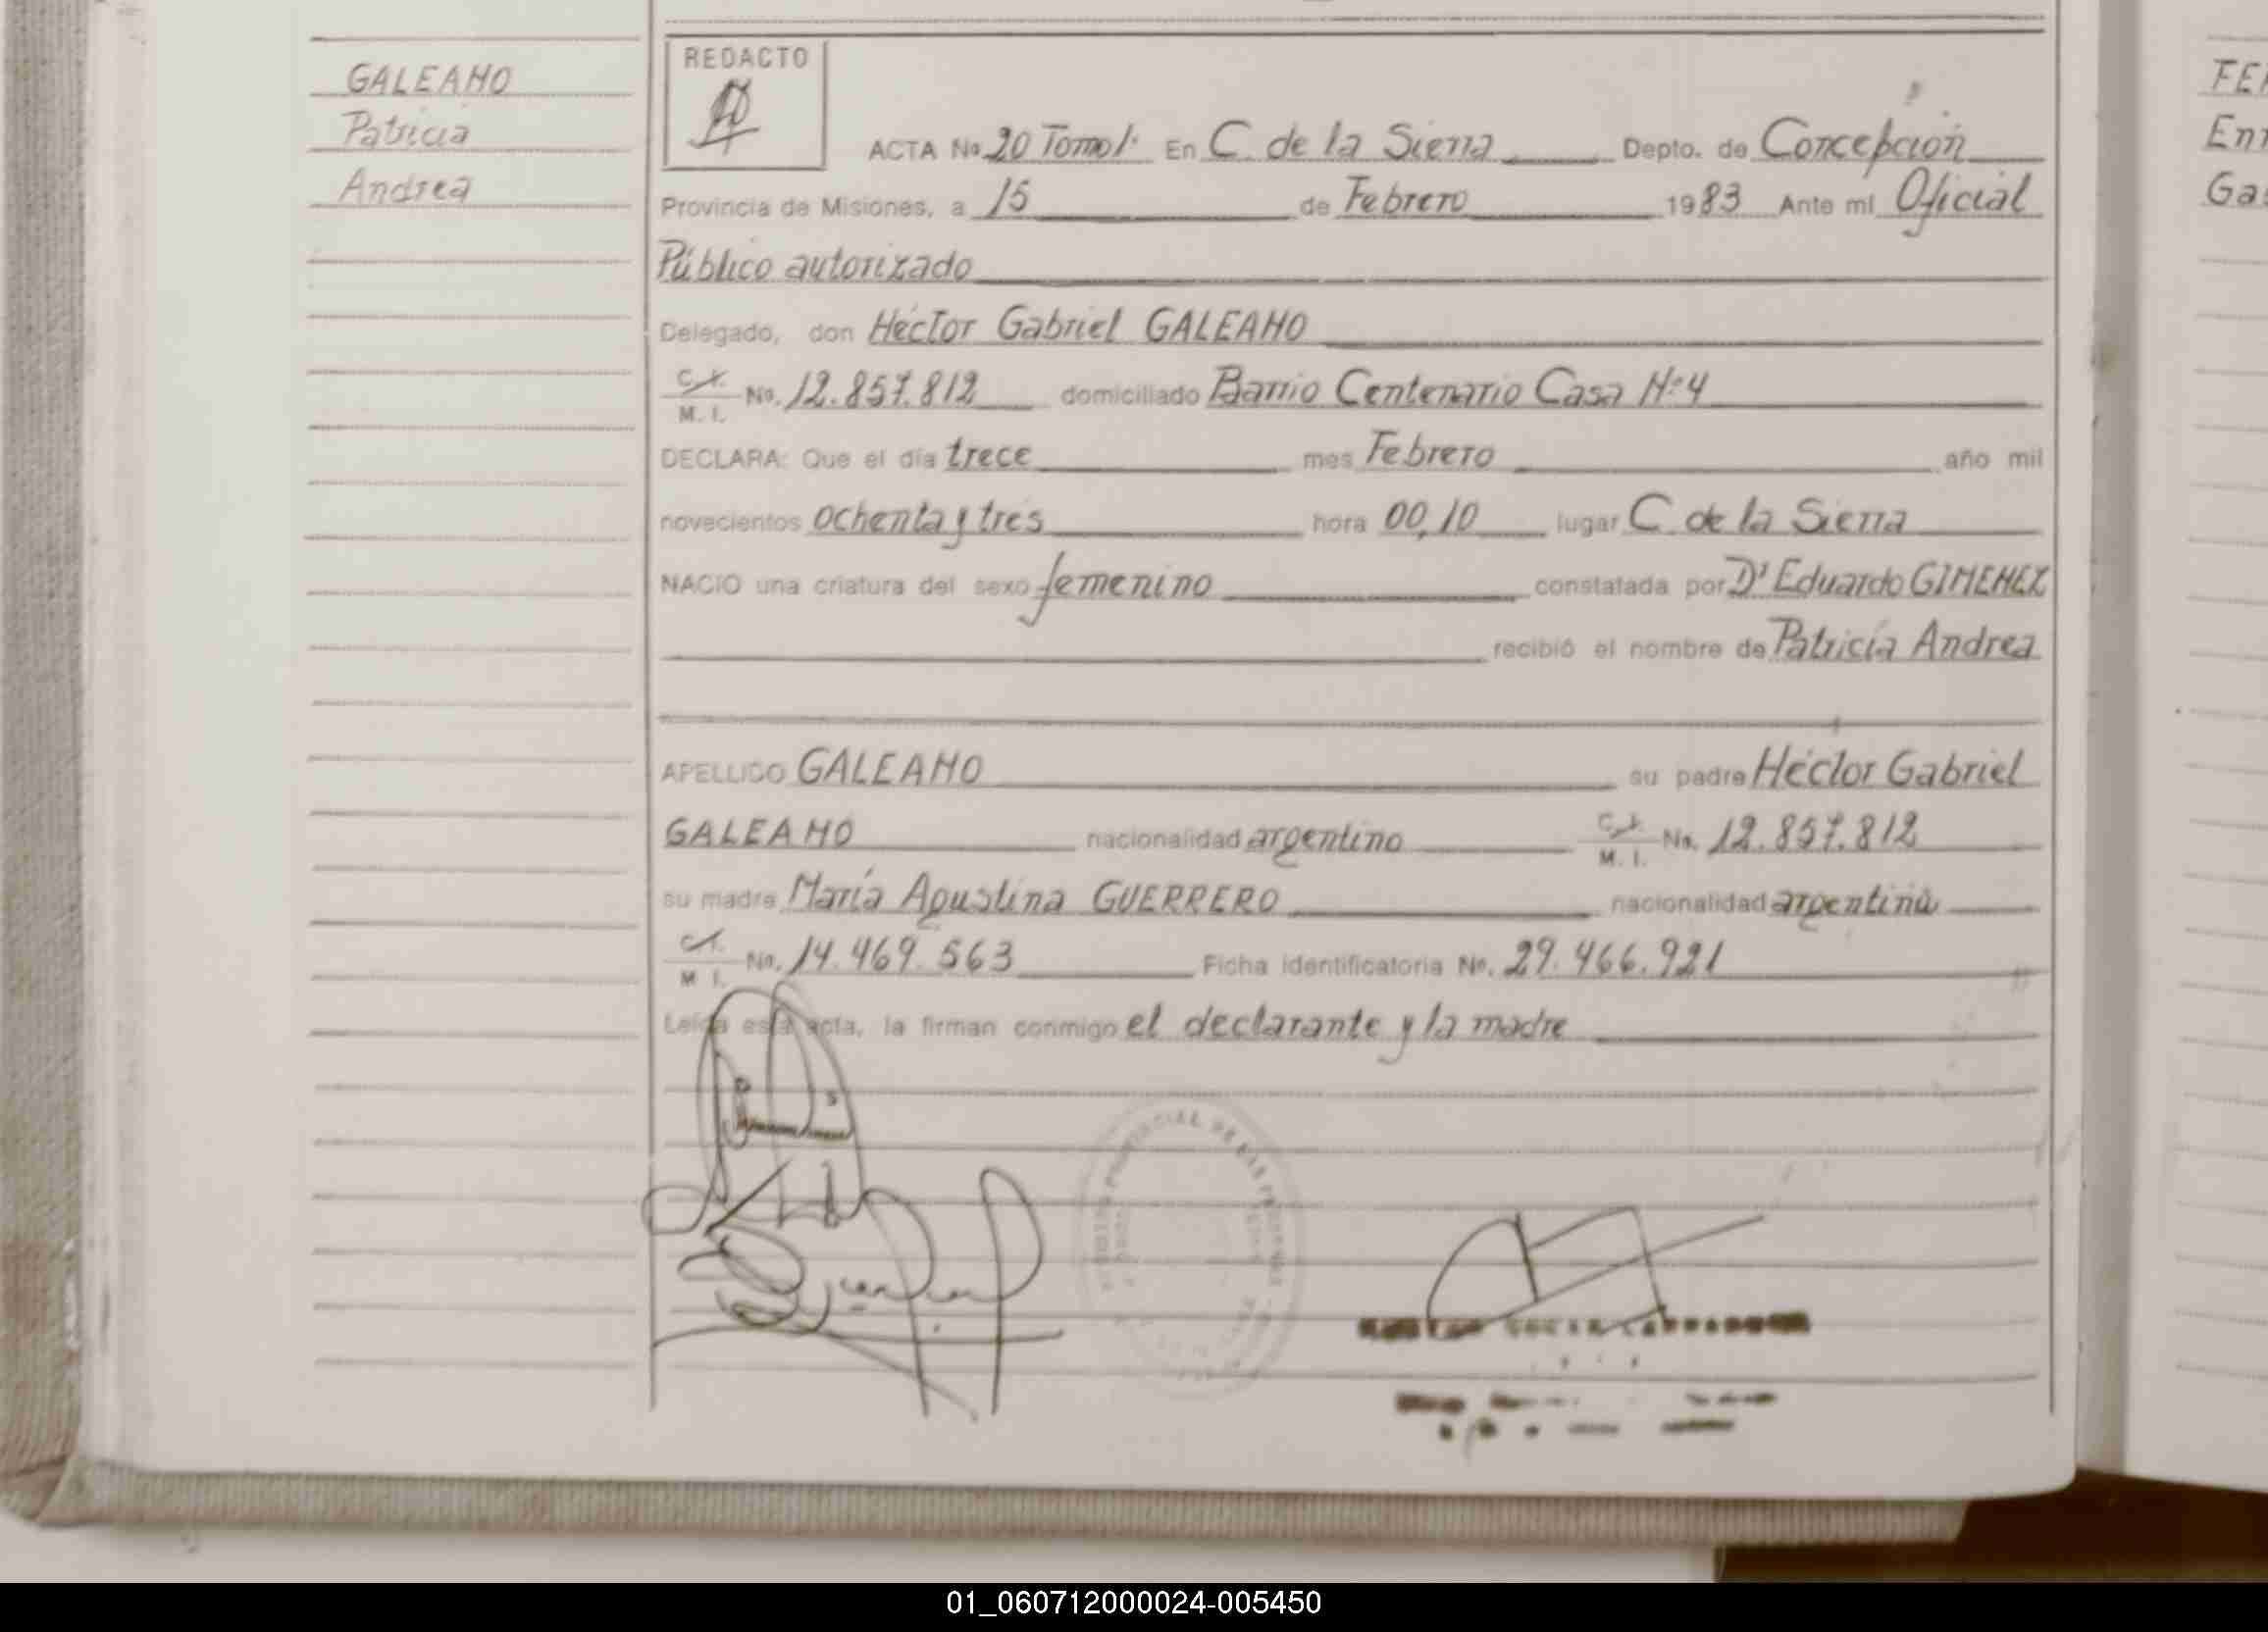 GALEANO
Patricia
Andrea
REDACTO
ACTA No 20 Tomo I. En C. de la Sierra Depto. de Concepción
Provincia de Misiones, a 15 de Febrero 1983 Ante mi Oficial
Público autorizado
Delegado, don Héctor Gabriel GALEANO
C. I. M. I. No. 12.857.812 domiciliado Barrio Centenario Casa Nº 4
DECLARA: Que el día trece mes Febrero año mil
novecientos ochenta y tres hora 00,10 lugar C. de la Sierra
NACIO una criatura del sexo femenino constatada por Dr Eduardo GIMENEZ
recibió el nombre de Patricia Andrea
APELLIDO GALEANO su padre Héctor Gabriel
GALEANO nacionalidad argentino C. I. M. I. No. 12.857.812
su madre María Agustina GUERRERO nacionalidad argentina
C. I. M. I. No. 14.469.563 Ficha identificatoria No. 29.466.921
Leída esta acta, la firman conmigo el declarante y la madre
FE
En
Ga
01_060712000024-005450